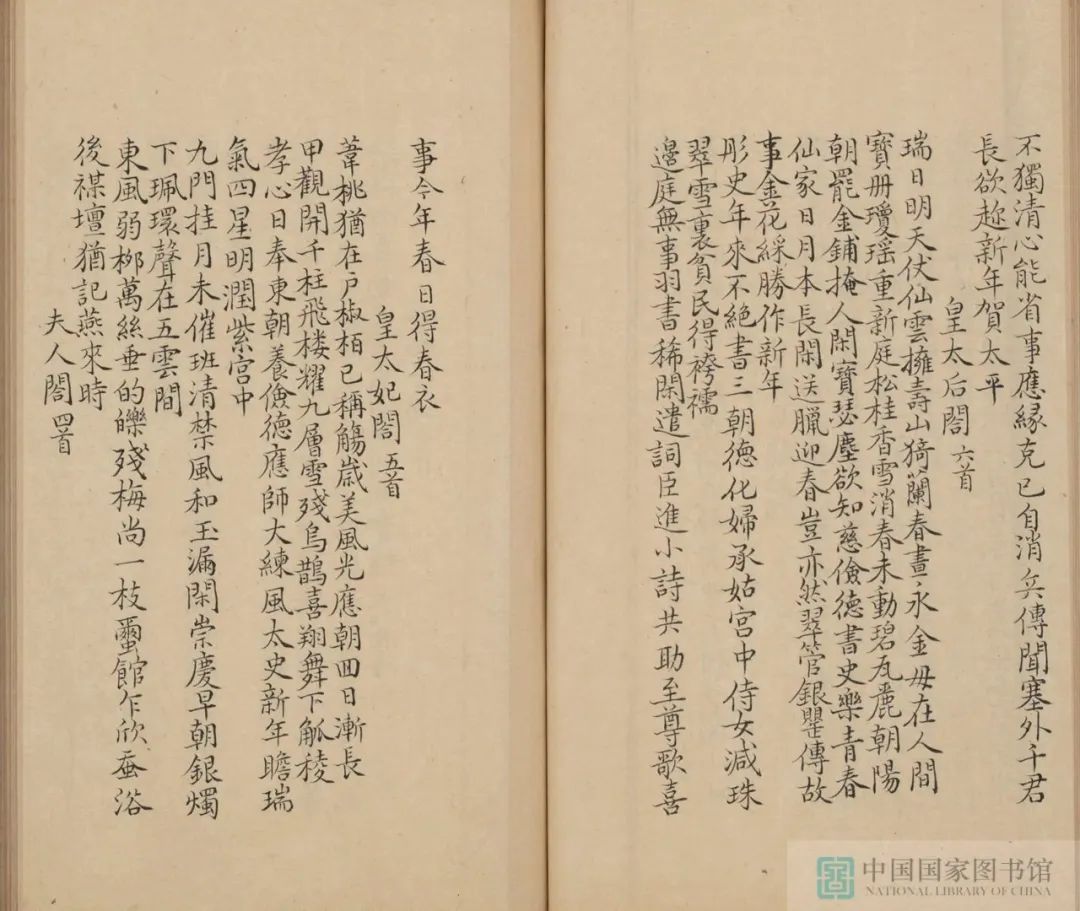 不獨清心能省事應緣克已自消兵傳聞塞外千君
長欲趂新年賀太平
皇太后閤 六首
瑞日明天仗仙雲擁壽山猗蘭春晝永金母在人間
寶册瓊瑶重新庭松桂香雪消春未動碧瓦麗朝陽
朝罷金鋪掩人閑寶瑟塵欲知慈儉德書史樂青春
仙家日月本長閑送臘迎春豈亦然翠管銀罌傳故
事金花綵勝作新年
彤史年來不絶書三朝德化婦承姑宫中侍女減珠
翠雪裏貧民得袴襦
邊庭無事羽書稀閑遣詞臣進小詩共助至尊歌喜
事今年春日得春衣
皇太妃閤 五首
葦桃猶在户椒栢已稱觴歲美風光應朝回日漸長
甲觀開千柱飛楼耀九層雪殘烏鵲喜翔舞下觚稜
孝心日奉東朝養儉德應師大練風太史新年瞻瑞
氣四星明潤紫宫中
九門挂月未催班清禁風和玉漏閑崇慶早朝銀燭
下珮環聲在五雲間
東風弱栁萬絲垂的皪殘梅尚一枝蠒館乍欣蚕浴
後禖壇猶記燕來時
夫人閤 四首
中国国家图书馆
NATIONAL LIBRARY OF CHINA